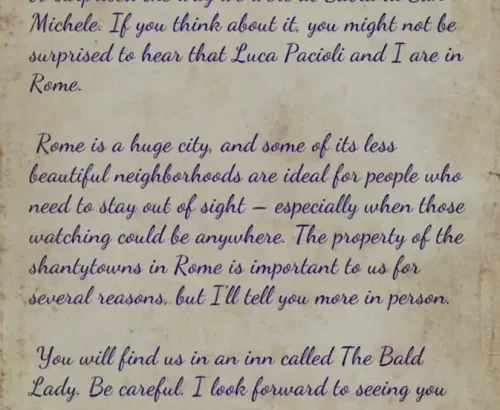 Michele. If you think about it, you might not be
surprised to hear that Luca Pacioli and I are in
Rome.
Rome is a huge city, and some of its less
beautiful neighborhoods are ideal for people who
need to stay out of sight – especially when those
watching could be anywhere. The property of the
shantytowns in Rome is important to us for
several reasons, but I'll tell you more in person.
You will find us in an inn called The Bald
Lady. Be careful. I look forward to seeing you